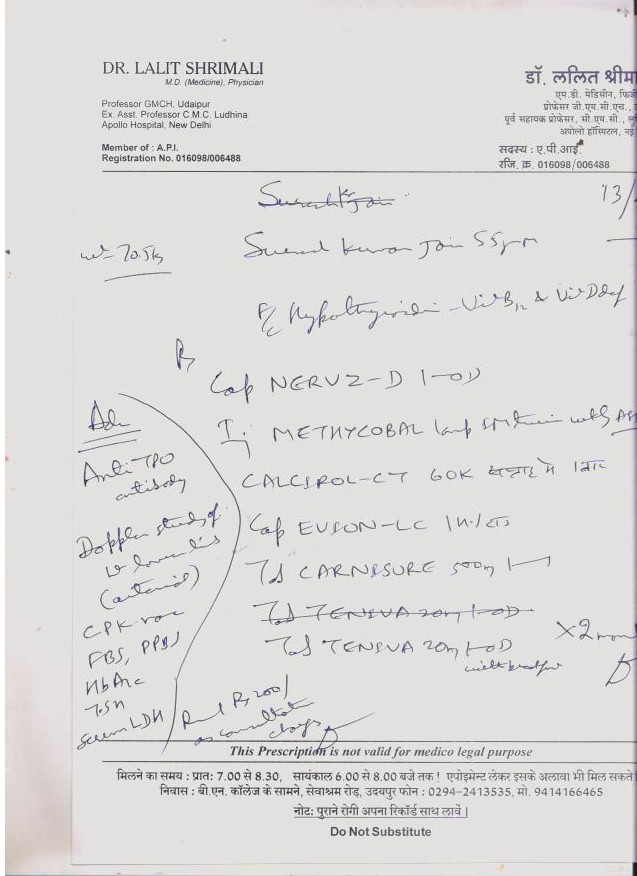 DR. LALIT SHRIMALI
M.D. (Medicine), Physician
Professor GMCH, Udaipur
Ex. Asst. Professor C.M.C. Ludhina
Apollo Hospital, New Delhi
Member of : A.P.I.
Registration No. 016098/006488
डॉ. ललित श्रीमा
एम.डी. मेडिसीन, फिजि
प्रोफेसर जी.एम.सी.एच.,
पूर्व सहायक प्रोफेसर, सी.एम.सी., लु
अपोलो हॉस्पिटल, नई
सदस्य : ए.पी.आई.
रजि. क्र. 016098/006488
13/
wt- 70.5kg
Kumar Jain 55yr m
- Vit B12 & Vit D def
Rx
Cap NERVZ-D 1-OD
Inj METHYCOBAL 1amp
CALCIROL-CT 60K सप्ताह मे 1 बार
Cap EVION-LC
Tab CARNISURE 500mg
Tab TENEVA 20mg 1-OD
Tab TENEVA 20mg 1-OD
X2 mon
Adv
Anti TPO
antibody
Doppler study of
(arterial)
CPK-
FBS, PPBS
HbA1c
TSH
Serum LDH
Rs 200/
as consultation
charges
This Prescription is not valid for medico legal purpose
मिलने का समय : प्रात: 7.00 से 8.30, सायंकाल 6.00 से 8.00 बजे तक ! एपोइमेन्ट लेकर इसके अलावा भी मिल सकते
निवास : बी.एन. कॉलेज के सामने, सेवाश्रम रोड़, उदयपुर फोन : 0294-2413535, मो. 9414166465
नोट: पुराने रोगी अपना रिकॉर्ड साथ लावें ।
Do Not Substitute